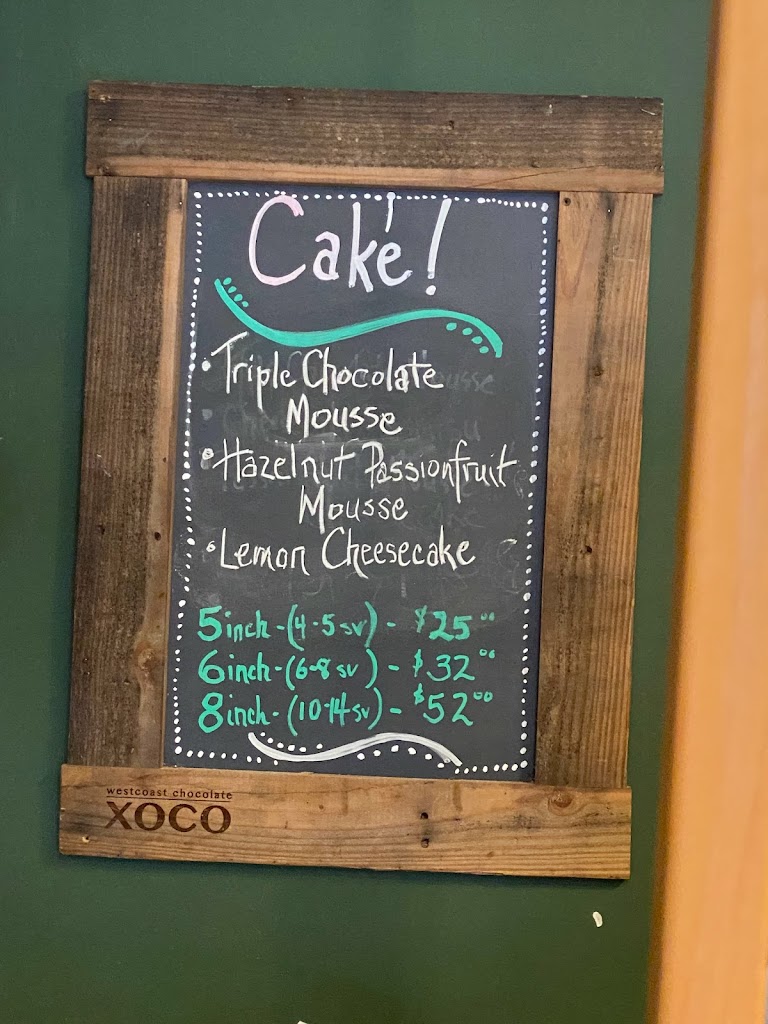 Cake!
• Triple Chocolate
Mousse
• Hazelnut Passionfruit
Mousse
• Lemon Cheesecake
5inch - (4-5 sv) - $25.00
6inch - (6-8 sv) - $32.00
8inch - (10-14 sv) - $52.00
westcoast chocolate
XOCO